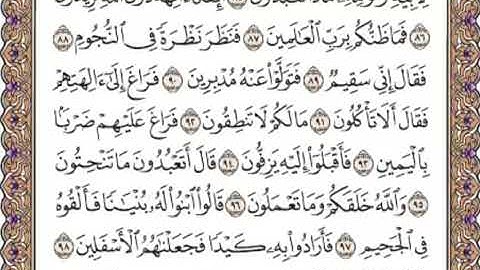 فَمَا ظَنُّكُم بِرَبِّ ٱلْعَٰلَمِينَ ٨٧ فَنَظَرَ نَظْرَةً فِى ٱلنُّجُومِ ٨٨
فَقَالَ إِنِّى سَقِيمٌ ٨٩ فَتَوَلَّوْا۟ عَنْهُ مُدْبِرِينَ ٩٠ فَرَاغَ إِلَىٰٓ ءَالِهَتِهِمْ
فَقَالَ أَلَا تَأْكُلُونَ ٩١ مَا لَكُمْ لَا تَنطِقُونَ ٩٢ فَرَاغَ عَلَيْهِمْ ضَرْبًۢا
بِٱلْيَمِينِ ٩٣ فَأَقْبَلُوٓا۟ إِلَيْهِ يَزِفُّونَ ٩٤ قَالَ أَتَعْبُدُونَ مَا تَنْحِتُونَ
٩٥ وَٱللَّهُ خَلَقَكُمْ وَمَا تَعْمَلُونَ ٩٦ قَالُوا۟ ٱبْنُوا۟ لَهُۥ بُنْيَٰنًا فَأَلْقُوهُ
فِى ٱلْجَحِيمِ ٩٧ فَأَرَادُوا۟ بِهِۦ كَيْدًا فَجَعَلْنَٰهُمُ ٱلْأَسْفَلِينَ ٩٨